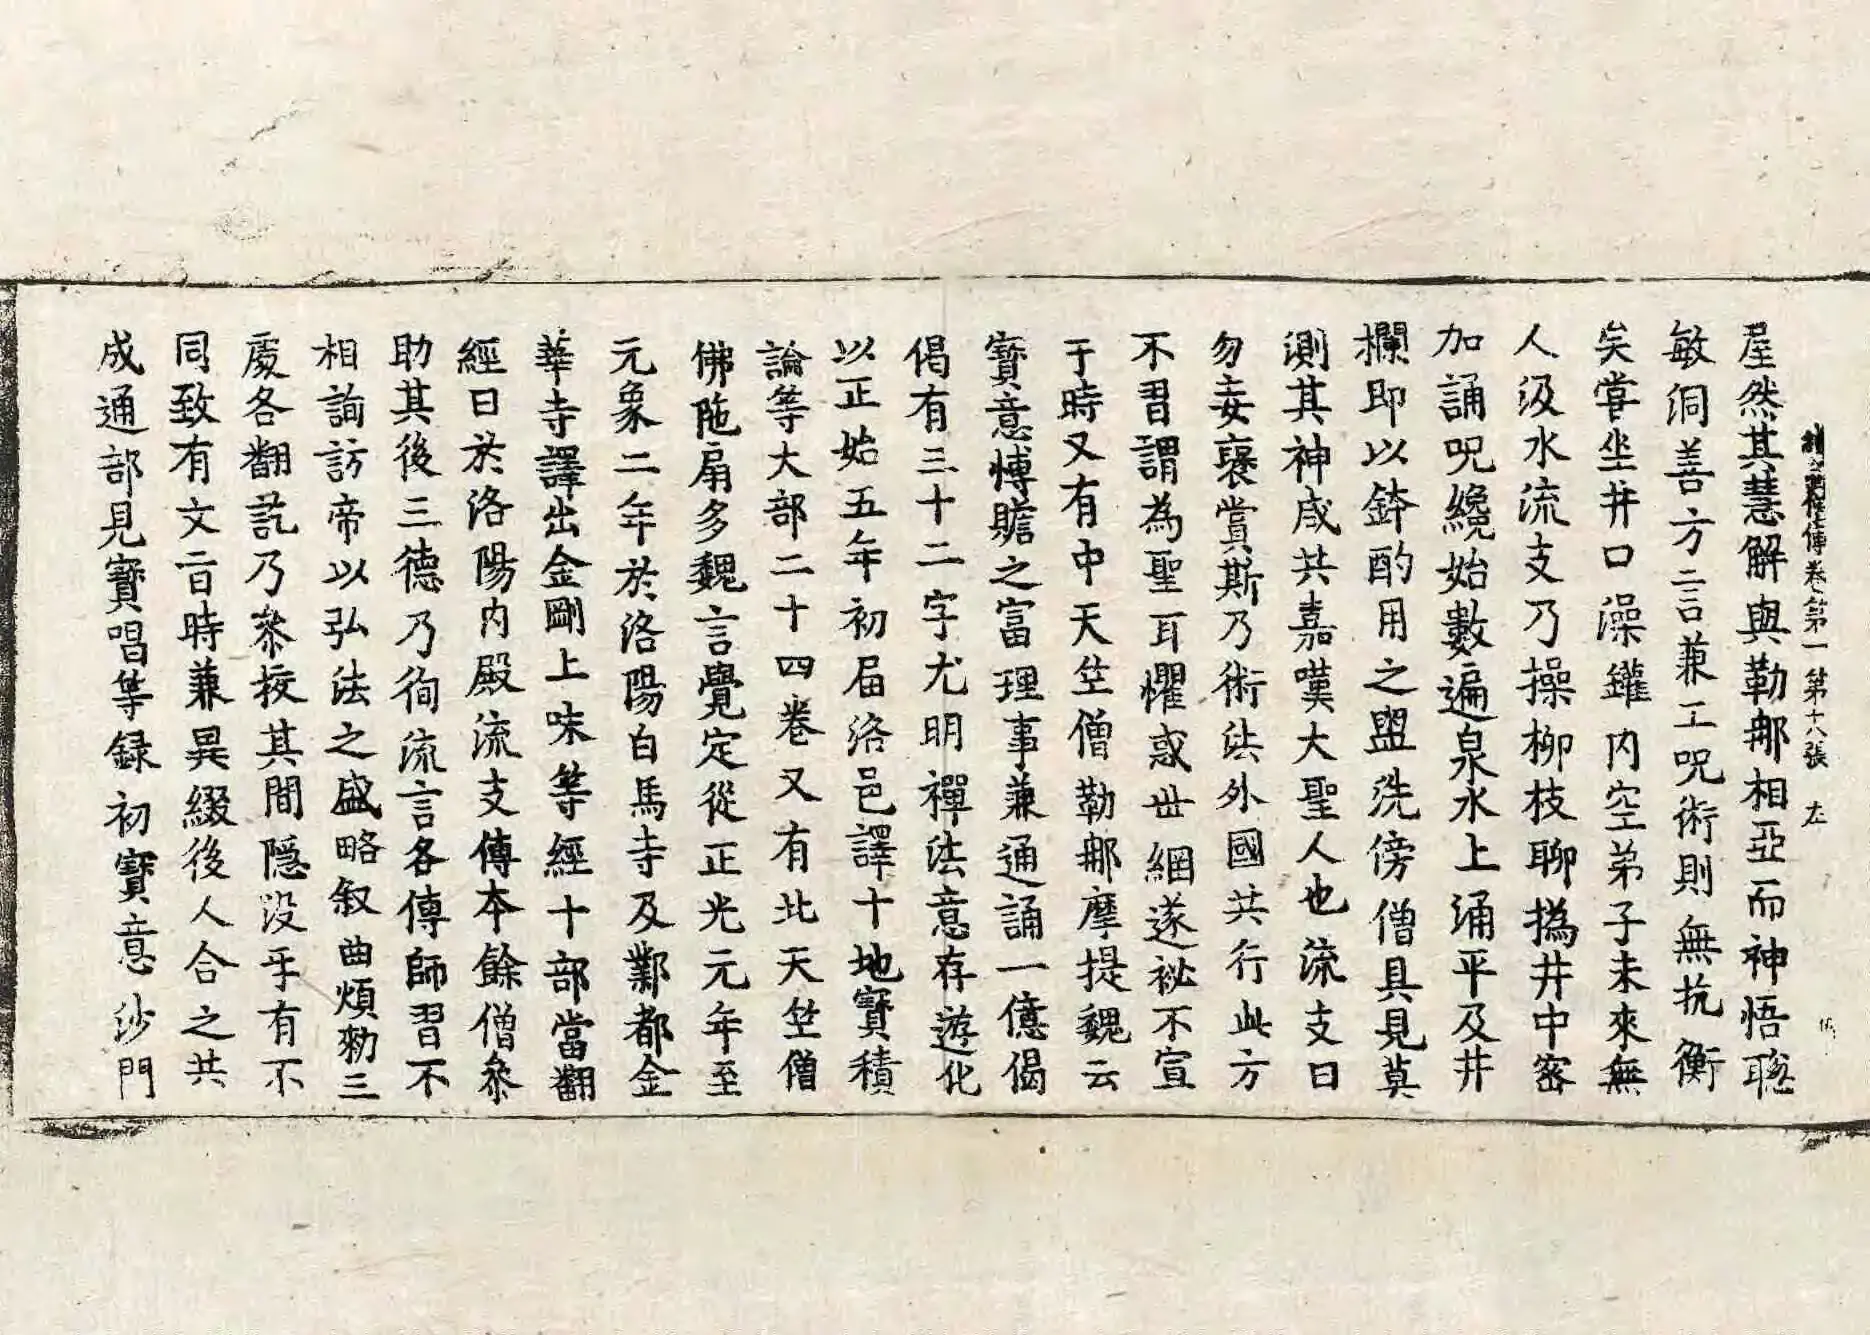 續高僧傳卷第一 第十八張 左
屋然其慧解與勒那相亞而神悟聡
敏洞善方言兼工呪術則無抗衡
矣嘗坐井口澡罐內空弟子未來無
人汲水流支乃操柳枝聊撝井中密
加誦呪纔始數遍泉水上涌平及井
欄即以鉢酌用之盥洗傍僧具見莫
測其神咸共嘉嘆大聖人也流支曰
勿妄襃賞斯乃術法外國共行此方
不習謂為聖耳懼惑世網遂祕不宣
于時又有中天竺僧勒那摩提魏云
寶意博贍之富理事兼通誦一億偈
偈有三十二字尤明禪法意存遊化
以正始五年初届洛邑譯十地寶積
論等大部二十四卷又有北天竺僧
佛陁扇多魏言覺定從正光元年至
元象二年於洛陽白馬寺及鄴都金
華寺譯出金剛上味等經十部當翻
經日於洛陽內殿流支傳本餘僧叅
助其後三德乃徇流言各傳師習不
相詢訪帝以弘法之盛略叙曲煩勑三
處各翻訖乃叅挍其間隱沒乎有不
同致有文旨時兼異綴後人合之共
成通部見寶唱等録初寶意沙門